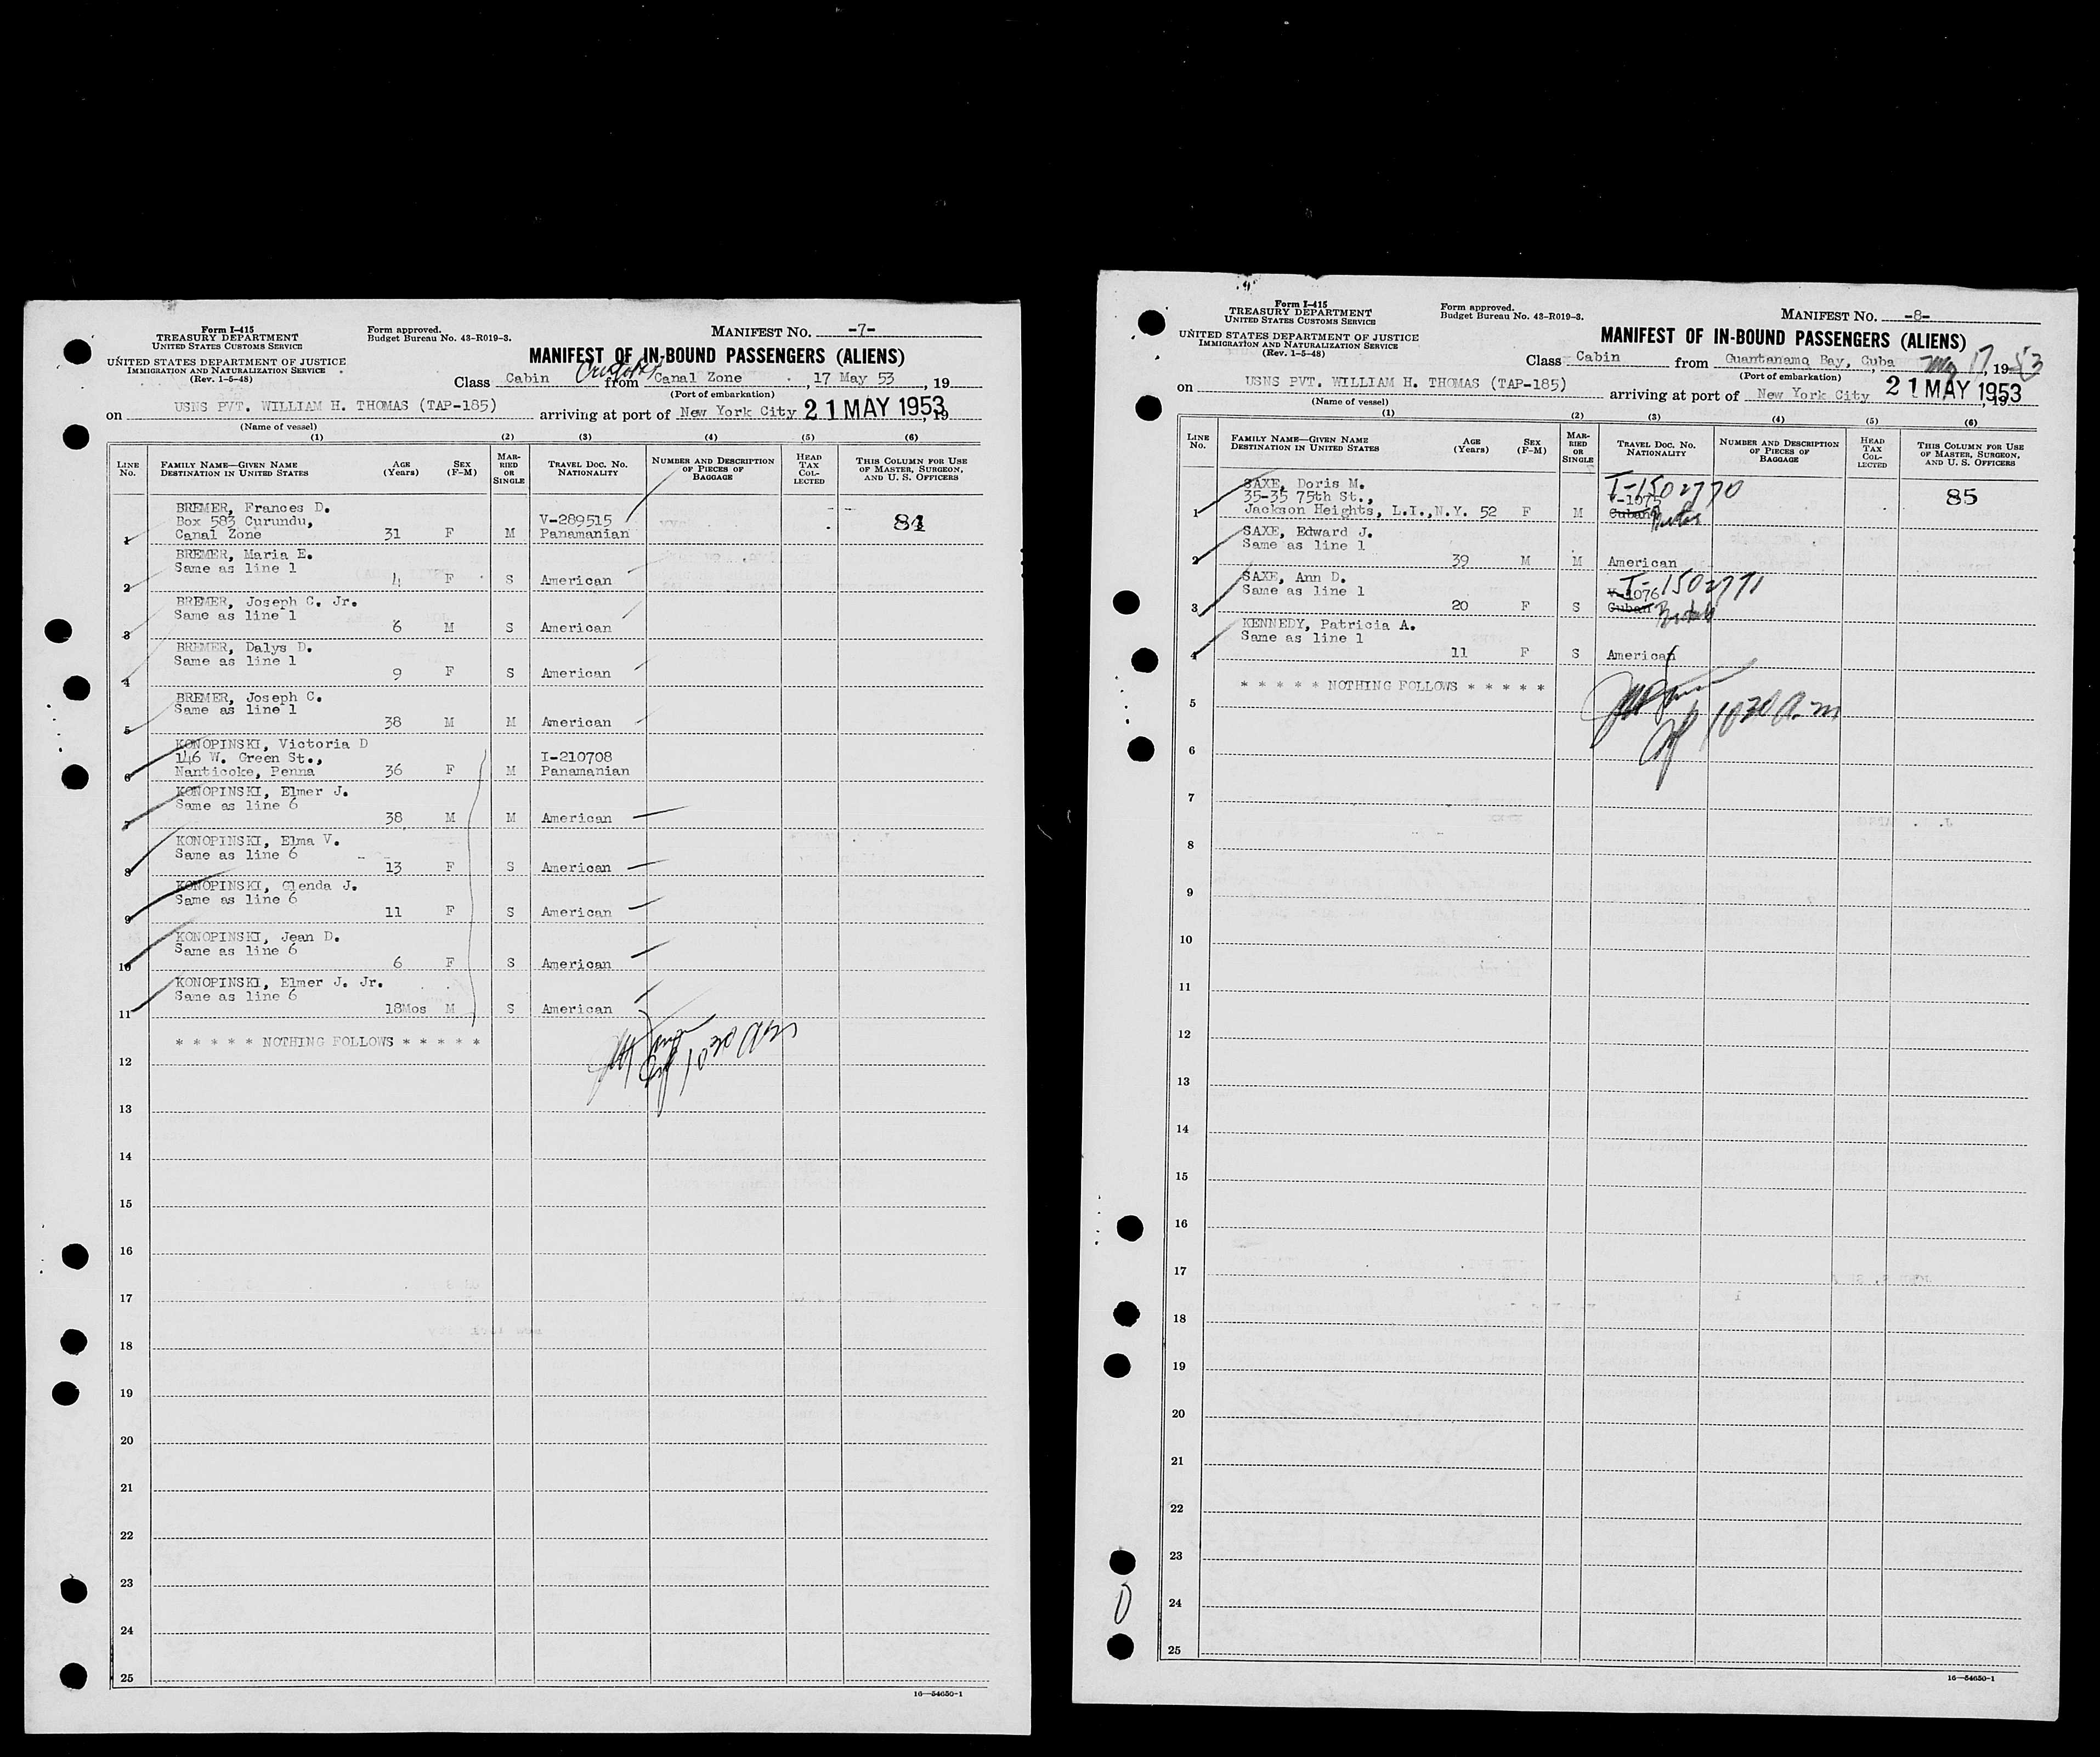 Form I-415
TREASURY DEPARTMENT
UNITED STATES CUSTOMS SERVICE
UNITED STATES DEPARTMENT OF JUSTICE
IMMIGRATION AND NATURALIZATION SERVICE
(Rev. 1-5-48)
Form approved.
Budget Bureau No. 43-R019-3.
MANIFEST NO. -7-
MANIFEST OF IN-BOUND PASSENGERS (ALIENS)
Class Cabin from Canal Zone, 17 May 53, 19
(Port of embarkation)
on USNS PVT. WILLIAM H. THOMAS (TAP-185) arriving at port of New York City 21 MAY 1953, 19
(Name of vessel)
(1) (2) (3) (4) (5) (6)
LINE NO. FAMILY NAME—GIVEN NAME DESTINATION IN UNITED STATES AGE (Years) SEX (F-M) MARRIED OR SINGLE TRAVEL DOC. NO. NATIONALITY NUMBER AND DESCRIPTION OF PIECES OF BAGGAGE HEAD TAX COLLECTED THIS COLUMN FOR USE OF MASTER, SURGEON, AND U. S. OFFICERS
BREMER, Frances D.
Box 583 Curundu, V-289515 84
1 Canal Zone 31 F M Panamanian
BREMER, Maria E.
Same as line 1
2 4 F S American
BREMER, Joseph C. Jr.
Same as line 1
3 6 M S American
BREMER, Dalys D.
Same as line 1
4 9 F S American
BREMER, Joseph C.
Same as line 1
5 38 M M American
KONOPINSKI, Victoria D
146 W. Green St., I-210708
6 Nanticoke, Penna 36 F M Panamanian
KONOPINSKI, Elmer J.
Same as line 6
7 38 M M American
KONOPINSKI, Elma V.
Same as line 6
8 13 F S American
KONOPINSKI, Glenda J.
Same as line 6
9 11 F S American
KONOPINSKI, Jean D.
Same as line 6
10 6 F S American
KONOPINSKI, Elmer J. Jr.
Same as line 6
11 18Mos M S American
* * * * * NOTHING FOLLOWS * * * * *
12
13
14
15
16
17
18
19
20
21
22
23
24
25
16—54650-1
Form I-415
TREASURY DEPARTMENT
UNITED STATES CUSTOMS SERVICE
UNITED STATES DEPARTMENT OF JUSTICE
IMMIGRATION AND NATURALIZATION SERVICE
(Rev. 1-5-48)
Form approved.
Budget Bureau No. 43-R019-3.
MANIFEST NO. -8-
MANIFEST OF IN-BOUND PASSENGERS (ALIENS)
Class Cabin from Guantanamo Bay, Cuba, May 17, 1953
(Port of embarkation)
on USNS PVT. WILLIAM H. THOMAS (TAP-185) arriving at port of New York City 21 MAY 1953, 19
(Name of vessel)
(1) (2) (3) (4) (5) (6)
LINE NO. FAMILY NAME—GIVEN NAME DESTINATION IN UNITED STATES AGE (Years) SEX (F-M) MARRIED OR SINGLE TRAVEL DOC. NO. NATIONALITY NUMBER AND DESCRIPTION OF PIECES OF BAGGAGE HEAD TAX COLLECTED THIS COLUMN FOR USE OF MASTER, SURGEON, AND U. S. OFFICERS
SAXE, Doris M. I-1502770
35-35 75th St., V-1075 85
1 Jackson Heights, L.I.,N.Y. 52 F M Cuban
SAXE, Edward J.
Same as line 1
2 39 M M American
SAXE, Ann D. I-1502771
Same as line 1 V-1076
3 20 F S Cuban
KENNEDY, Patricia A.
Same as line 1
4 11 F S American
* * * * * NOTHING FOLLOWS * * * * *
5 1030 A.m
6
7
8
9
10
11
12
13
14
15
16
17
18
19
20
21
22
23
24
25
16—54650-1